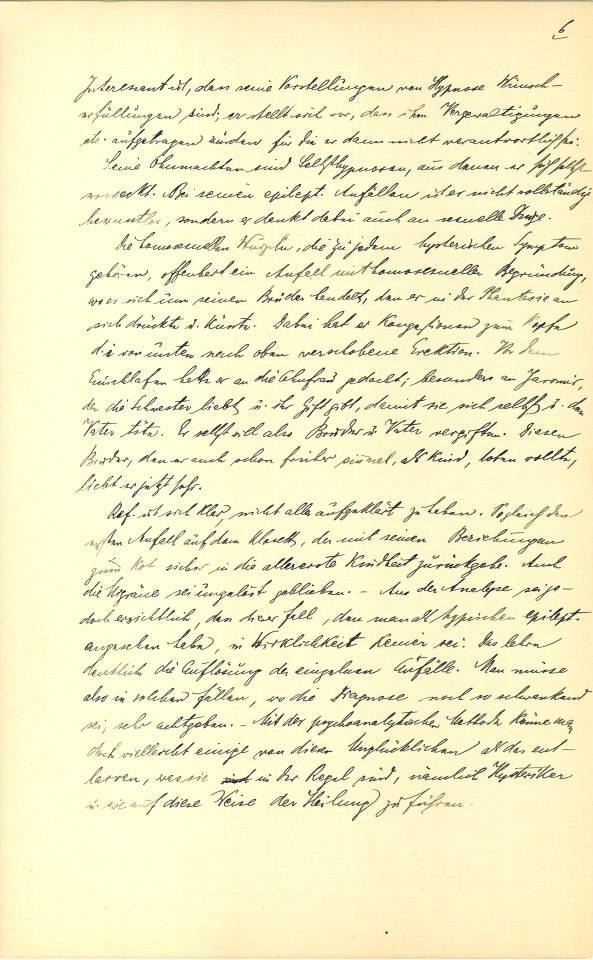 6
Interessant ist, dass seine Vorstellungen von Hypnose Wunsch-
erfüllungen sind; er stellt sich vor, dass ihm Vergewaltigungen
etc. aufgetragen würden für die er dann nicht verantwortlich sei.
Seine Ohnmachten sind Selbsthypnosen, aus denen er sich selbst
erweckt. Bei seinen epilept. Anfällen ist er nicht vollständig
bewusstlos, sondern er denkt dabei auch an sexuelle Dinge.
Die homosexuellen Wurzeln, die zu jedem hysterischen Symptom
gehören, offenbart ein Anfall mit homosexueller Begründung,
wo es sich um seinen Bruder handelt, den er in der Phantasie an
sich drückte u. küsste. Dabei hat er Kongestionen zum Kopfe
die von unten nach oben verschobene Erektion. Vor dem
Einschlafen hatte er an die Ahnfrau gedacht; besonders an Jaromir,
der die Schwester liebt u. ihr Gift gibt, damit sie sich selbst u. den
Vater töte. Er selbst will also Bruder u. Vater vergiften. Diesen
Bruder, den er auch schon früher einmal, als Kind, töten wollte,
liebt er jetzt sehr.
Ref. ist sich klar, nicht alles aufgeklärt zu haben. Sogleich den
ersten Anfall auf dem Klosett, der mit seinen Beziehungen
zum Kot sicher in die allererste Kindheit zurückgehe. Auch
die Migräne sei ungelöst geblieben. – Aus der Analyse sei je-
doch ersichtlich, dass dieser Fall, den man als typischen epilept.
angesehen habe, in Wirklichkeit keiner sei. Das lehre
deutlich die Auflösung der einzelnen Anfälle. Man müsse
also in solchen Fällen, wo die Diagnose noch so schwankend
sei, sehr achtgeben. – Mit der psychoanalytischen Methode könne man
doch vielleicht einige von diesen Unglücklichen als das ent-
larven, was sie in der Regel sind, nämlich Hysteriker
u. sie auf diese Weise der Heilung zu führen.